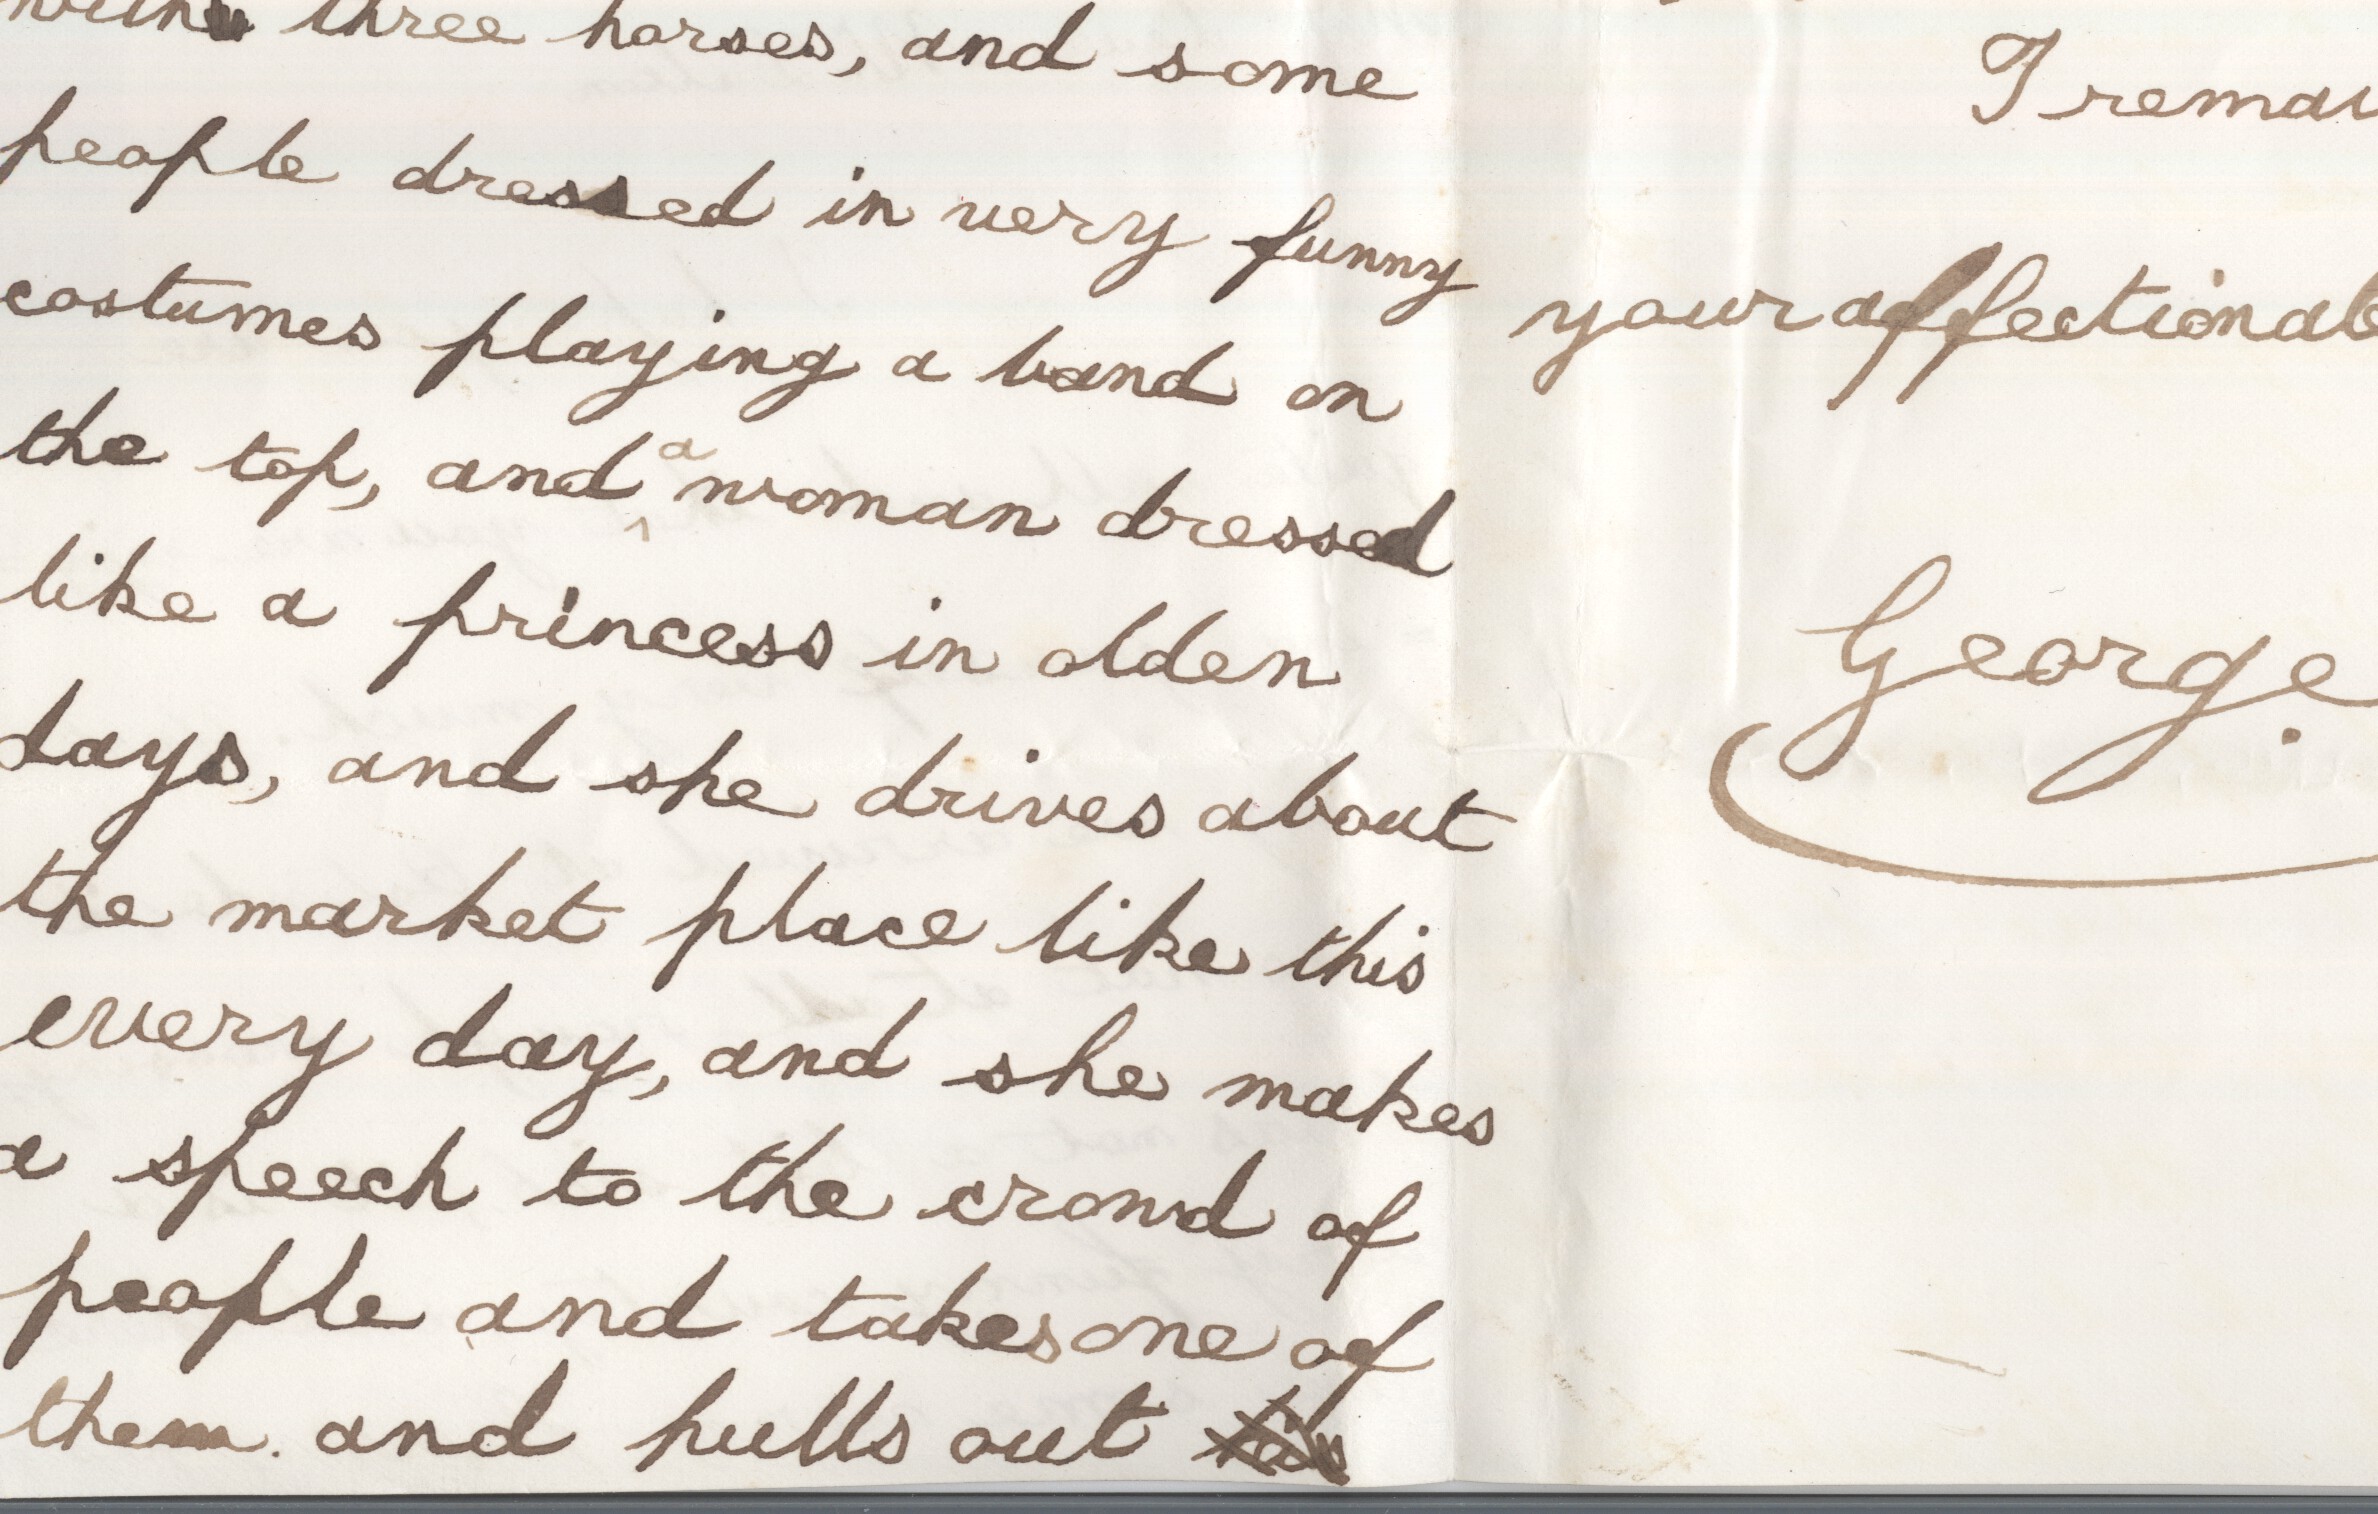 with three horses, and some
people dressed in very funny
costumes playing a band on
the top, and a woman dressed
like a princess in olden
days, and she drives about
the market place like this
every day, and she makes
a speech to the crowd of
people and takes one of
them and pulls out
I remai
your affectionat
George